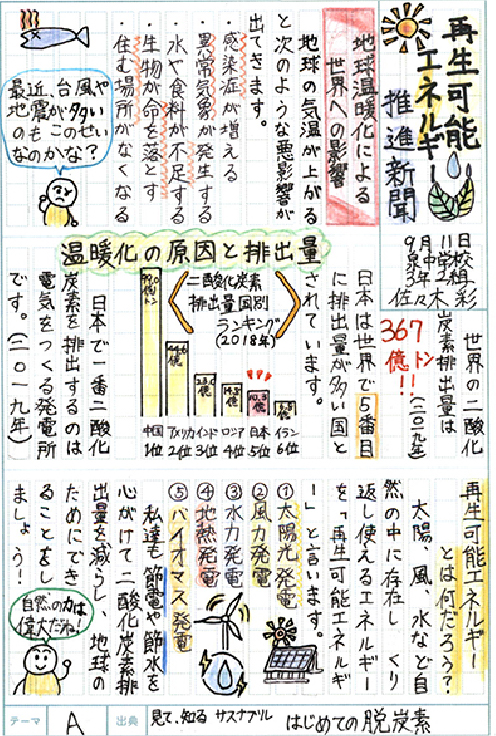 再生可能
エネルギー
推進新聞
9月11日
泉中学校
3年2組
佐々木 彩
地球温暖化による
世界への影響
地球の気温が上がる
と次のような悪影響が
出てきます。
・感染症が増える
・異常気象が発生する
・水や食料が不足する
・生物が命を落とす
・住む場所がなくなる
最近、台風や
地震が多い
のもこのせい
なのかな？
温暖化の原因と排出量
世界の二酸化
炭素排出量は
(二〇一九年)
367
億トン!!
日本は世界で５番目
に排出量が多い国と
されています。
二酸化炭素
排出量国別
ランキング
(2018年)
10.3
億
中国 アメリカ インド ロシア 日本 イラン
1位 2位 3位 4位 5位 6位
日本で一番二酸化
炭素を排出するのは
電気をつくる発電所
です。(二〇一九年)
再生可能エネルギー
とは何だろう？
太陽、風、水など自
然の中に存在し くり
返し使えるエネルギー
を「再生可能エネルギ
ー」と言います。
①太陽光発電
②風力発電
③水力発電
④地熱発電
⑤バイオマス発電
私達も節電や節水を
心がけて二酸化炭素排
出量を減らし、地球の
ためにでき
ることをし
ましょう!
自然の力は
偉大だね!
テーマ A 出典 見て、知る サスナブル はじめての脱炭素